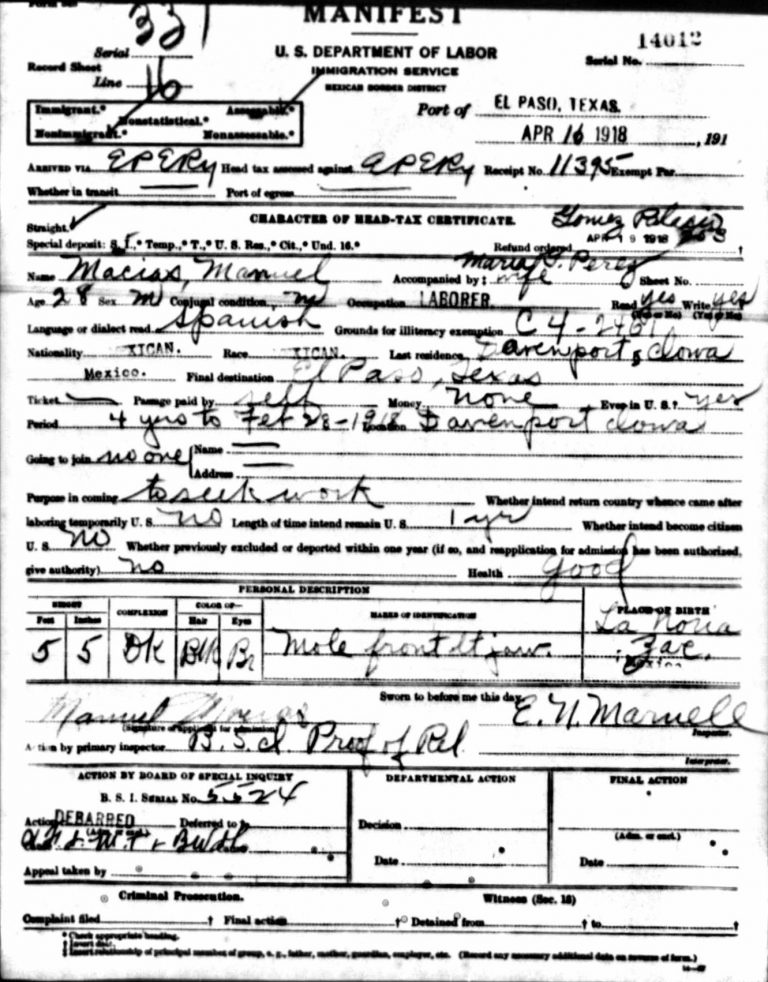 MANIFEST
331
14012
Serial
U. S. DEPARTMENT OF LABOR
Serial No.
Record Sheet
IMMIGRATION SERVICE
Line 16
MEXICAN BORDER DISTRICT
Immigrant.* Assessable.*
Nonstatistical.*
Nonimmigrant.* Nonassessable.*
Port of EL PASO, TEXAS.
APR 16 1918, 191
ARRIVED VIA EPERy Head tax assessed against EPERy Receipt No. 11395 Exempt Par.
Whether in transit Port of egress
CHARACTER OF HEAD-TAX CERTIFICATE. Gomez Palacio
Straight.
Special deposit: S. I.,* Temp.,* T.,* U. S. Res.,* Cit.,* Und. 16.* Refund ordered APR 19 1918 †
Maria G. Perez
Name Macias, Manuel Accompanied by ‡ wife Sheet No.
Age 28 Sex M Conjugal condition, m Occupation LABORER. Read yes Write yes
(Yes or No) (Yes or No)
Language or dialect read Spanish Grounds for illiteracy exemption C 4-
Nationality XICAN. Race XICAN. Last residence Davenport, Iowa
Mexico. Final destination El Paso, Texas
Ticket Passage paid by self Money none Ever in U. S.? yes
Period 4 yrs to Feb 28-1918 Location Davenport Iowa
Going to join no one Name
Address
Purpose in coming to seek work Whether intend return country whence came after
laboring temporarily U. S. no Length of time intend remain U. S. 1 yr Whether intend become citizen
U. S. no Whether previously excluded or deported within one year (if so, and reapplication for admission has been authorized,
give authority). no Health good
PERSONAL DESCRIPTION
HEIGHT COMPLEXION COLOR OF— MARKS OF IDENTIFICATION PLACE OF BIRTH
Feet Inches Hair Eyes
5 5 DK Blk Br Mole front lt jaw. La Noria
Zac.
Mexico
Sworn to before me this day
Manuel Macias E. N. Marnell
(Signature of applicant for admission) Inspector.
Action by primary inspector B. S. I. Proof of Rel
Interpreter.
ACTION BY BOARD OF SPECIAL INQUIRY DEPARTMENTAL ACTION FINAL ACTION
B. S. I. SERIAL No. 5524
Action DEBARRED Deferred to
Decision
(Adm. or excl.)
Date Date
Appeal taken by
Criminal Prosecution. Witness (Sec. 18)
Complaint filed † Final action † Detained from † to †
* Check appropriate heading.
† Insert date.
‡ Insert relationship of principal member of group, e. g., father, mother, guardian, employer, etc. (Record any necessary additional data on reverse of form.)